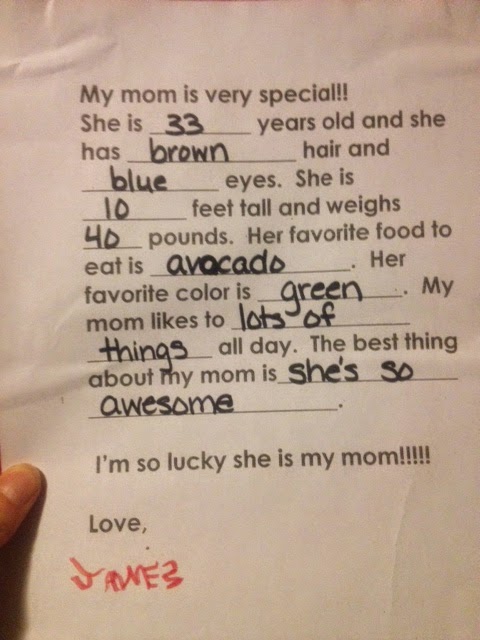 My mom is very special!!
She is 33 years old and she
has brown hair and
blue eyes. She is
10 feet tall and weighs
40 pounds. Her favorite food to
eat is avocado. Her
favorite color is green. My
mom likes to lots of
things all day. The best thing
about my mom is she's so
awesome.
I'm so lucky she is my mom!!!!!
Love,